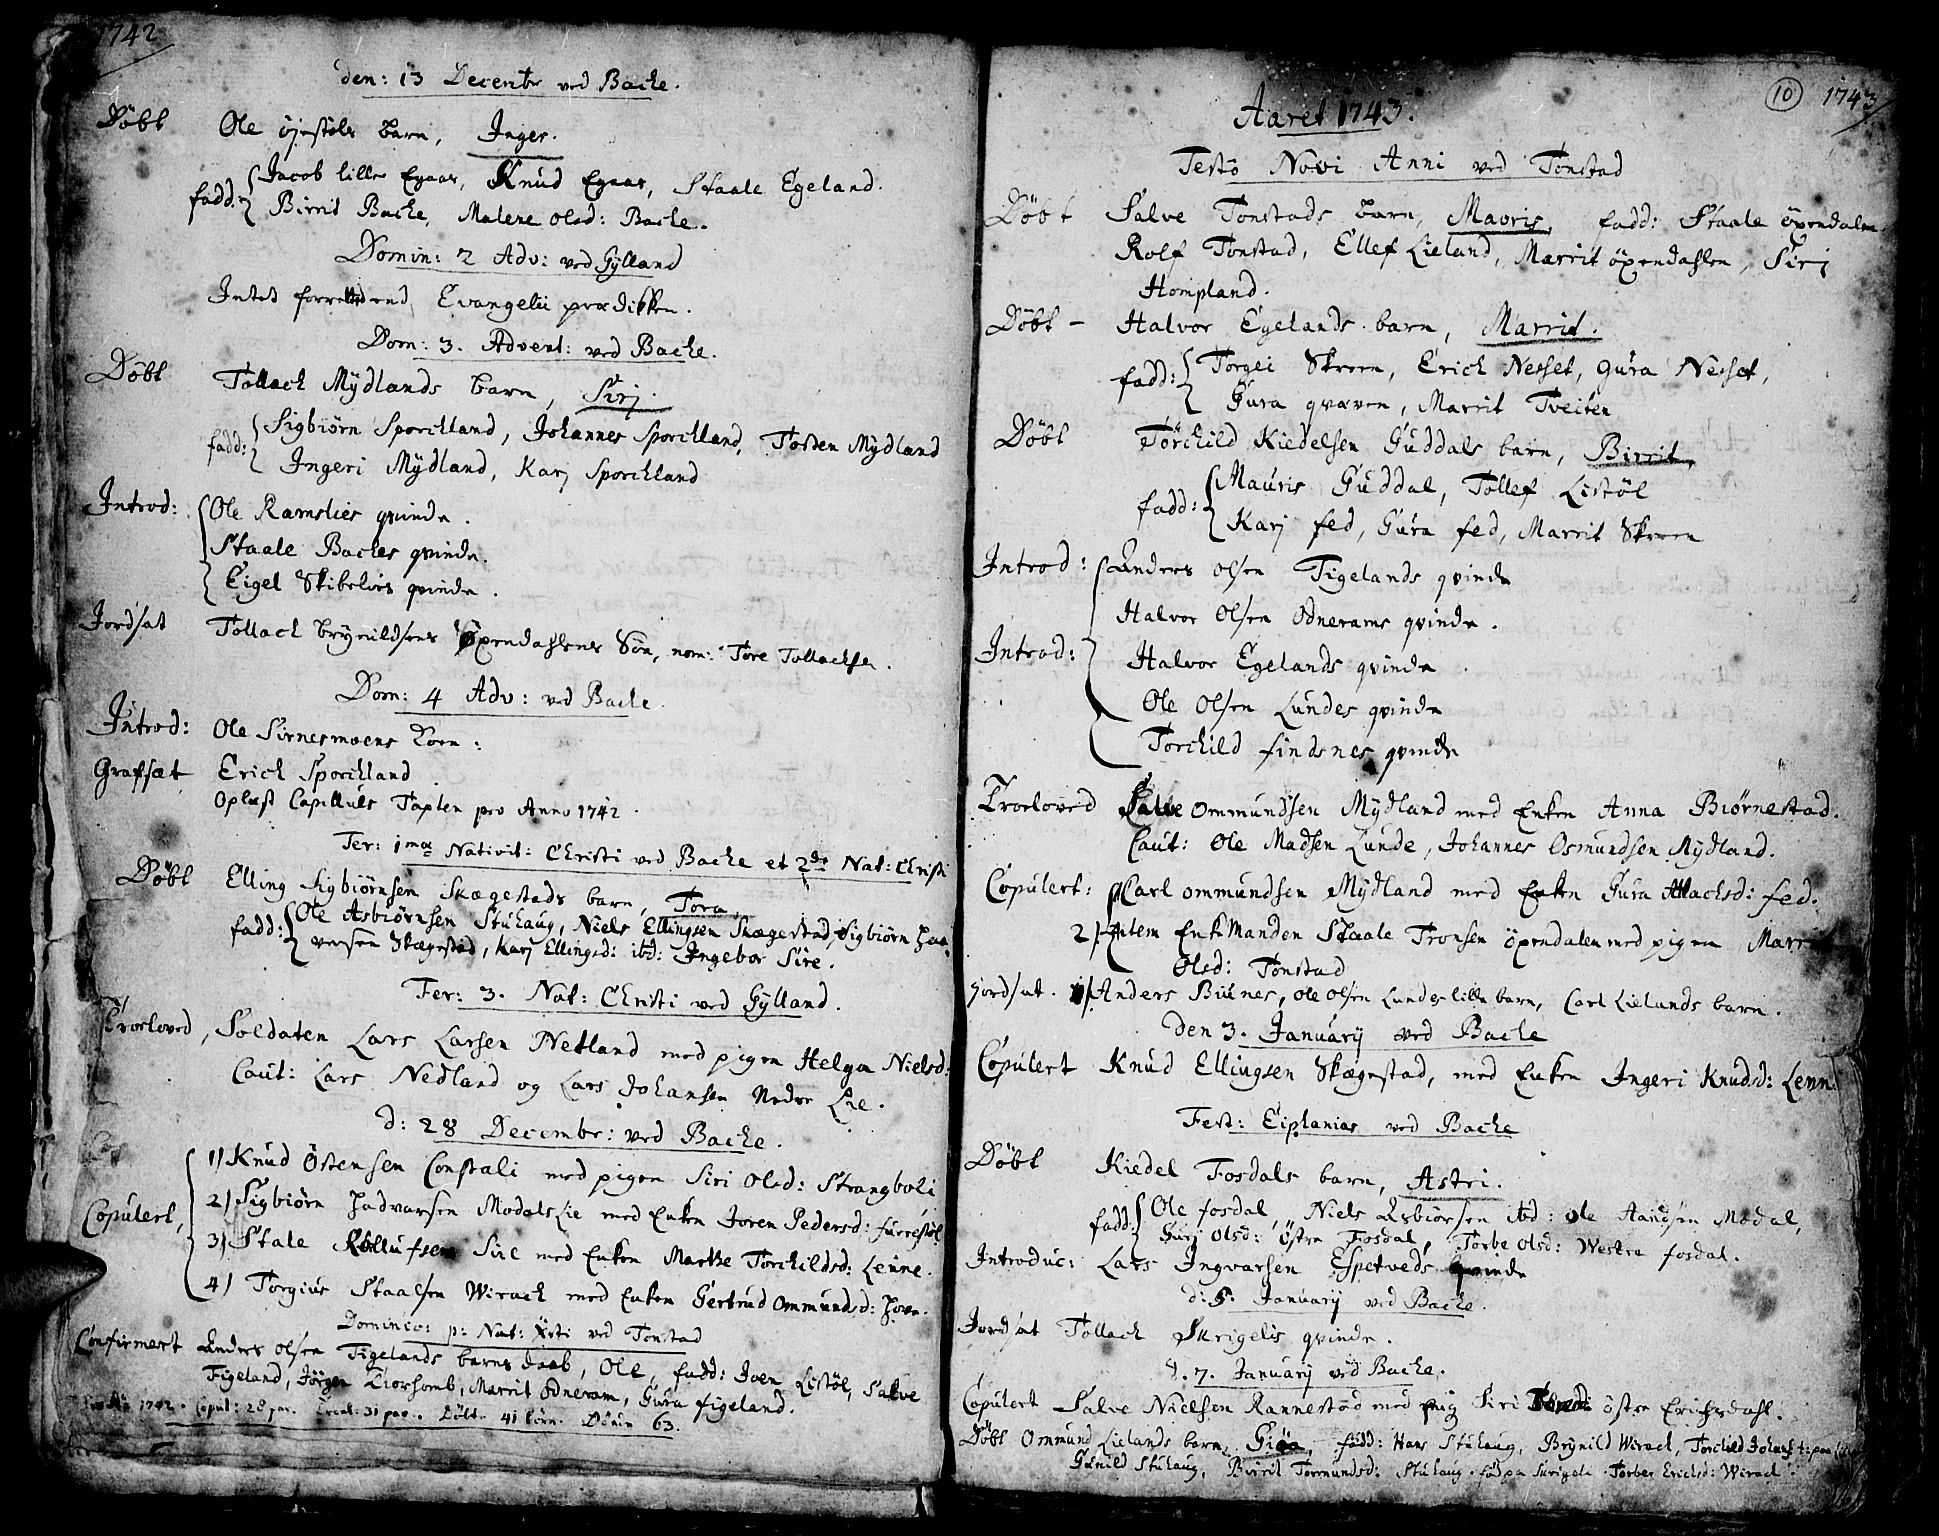 1742
den: 13 Decembr ved Bache.
Döbt Ole öjestöls barn, Inger.
fadd: Jacob lille Egaas, Knud Egaas, Staale Egeland.
Birrit Bache, Malene Olsd: Bache.
Domin: 2 Adv: ved Gÿlland
Intet forrettet end Evangelii prædikken.
Dom: 3. Advent: ved Bache.
Döbt Tollach Mÿdlands barn, Sirj.
fadd: Sigbiörn Sporchland, Johannes Sporchland, Tosten Mÿdland
Ingeri Mÿdland, Karj Sporchland
Introd: Ole Ramslies qvinde.
Staale Baches qvinde.
Eigel Skibelies qvinde.
Jordsat Tollach Brÿnildsens Öxendahlens Sön, nom: Tore Tollachsen.
Dom: 4 Adv: ved Bache.
Introd: Ole Sirnesmoens Kone:
Grafsæt Erich Sporchland
Oplæst Capitluls Taxten pro Anno 1742.
Fer: 1mæ Nativit: Christi ved Bache et 2de Nat: Christi
Döbt Elling Sigbiörnsen Skægestads barn, Tora,
fadd: Ole Asbiörnsen Stuhaug, Niels Ellingsen Skægestad, Sigbiörn Haa-
versen Skægestad, Karj Ellingsd: ibd: Ingebor Sire.
Fer: 3. Nat: Christi ved Gÿlland.
Troeloved, Soldaten Lars Larsen Netland med pigen Helga Nielsd:
Caut: Lars Nedland og Lars Johansen Nedre Lie.
d: 28 Decembr: ved Bache.
Copulert, 1) Knud Östensen Constali med pigen Siri Olsd: Strangboli
2) Sigbiörn Hadvarsen Modalslie med Enken Joren Pedersd: Furrestöl
3) Stale Rollufsen Sire med Enken Marthe Torchildsd: Lenne.
4) Torgius Staalsen Wirach med Enken Gertrud Ommundsd: Hove.
Dominic: p: Nat: Xsti ved Tonstad
Confirmert Anders Olsen Figelands barns daab, Ole, fadd: Joen Listöl, Salve
Figeland, Jörgen Liorsomb, Marrit Odneram, Gura Figeland.
1742. Copul: 28 par. Troel: 31 par. Döbt 41 börn. Döde 63.
10 1743
Aaret 1743.
Festo Novi Anni ved Tonstad
Döbt Salve Tonstads barn, Mauris, fadd: Staale öxendalen
Rolf Tonstad, Ellef Lieland, Marrit öxendahlen, Sirj
Hompland.
Döbt - Halvor Egelands barn, Marrit.
fadd: Torgei Skreen, Erich Nesset, Gura Nesset,
Gura qvæven, Marrit Tveiten
Döbt Torchild Kiedelsen Guddals barn, Birrit,
fadd: Mauris Guddal, Tollef Listöl
Karj fed, Gura fed, Marrit Skreen
Introd: Anders Olsen Figelands qvinde
Halvor Olsen Odnerams qvinde.
Introd: Halvor Egelands qvinde
Ole Olsen Lundes qvinde
Torchild findsnes qvinde
Troeloved Salve Ommundsen Mÿdland med Enken Anna Biörnestad.
Caut: Ole Madsen Lunde, Johannes Osmundsen Mÿdland.
Copulert: Carl Ommundsen Mÿdland med Enken Gura Atlachsd: fed.
2) Item EnkManden Staale Tronsen öxendalen med pigen Marrit
Olsd: Tonstad
Jordsat. Anders Biunes, Ole Olsen Lundes lille barn, Carl Lielands barn.
den 3. Januarÿ ved Bache
Copulert Knud Ellingsen Skægestad, med Enken Ingeri Knudsd: Lenne
Fest: Eiphanias ved Bache
Döbt Kiedel Fosdals barn, Astri.
fadd: Ole fosdal, Niels Asbiörsen ibd: Ole Aanensen Modal,
Siri Olsd: Östre Fosdal, Torbe Olsd: Westre fosdal.
Introduc: Lars Ingvarsen Espetveds qvinde
d: 5. Januarÿ ved Bache.
Jordsat Tollach Skrigelis qvinde.
d. 7. Januarÿ ved Bache.
Copulert Salve Nielsen Rannestad med pig Siri östre Erichsdahl.
Döbt Ommund Lielands barn, fadd: Hans Stuhaug, Brÿnild Wirach, Torchild
Gunild Stuhaug, Birrit Tormundsd: Stuhaug. Torber Erichsd: Wirach.